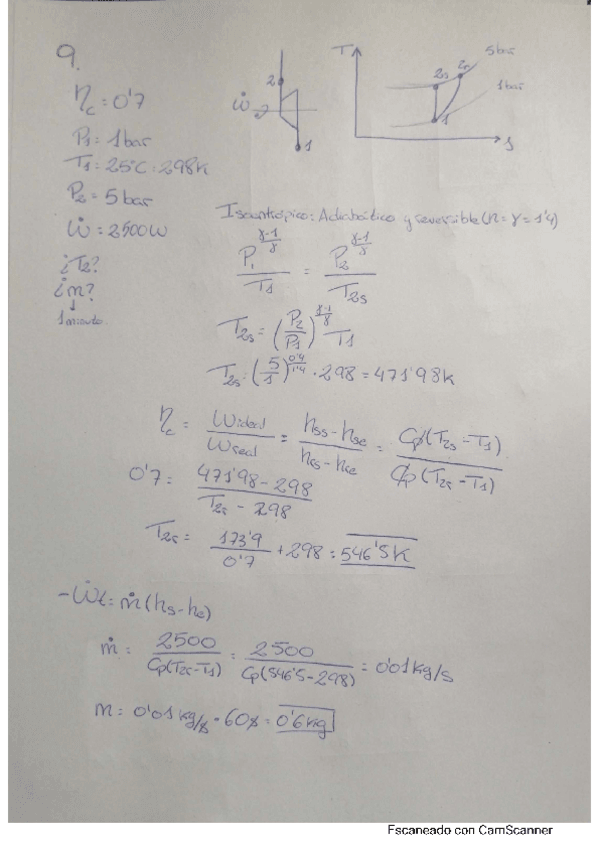 9.
η_c = 0'7
P1 = 1bar
T1 = 25°C = 298K
P2 = 5bar
Ẇ = 2500W
¿T2?
¿m?
↓
1 minuto
2
Ẇ
1
T
2s
2r
5bar
1bar
1
s
Isoentrópico: Adiabático y reversible (n = γ = 1'4)
P1^((γ-1)/γ) / T1 = P2^((γ-1)/γ) / T2s
T2s = (P2/P1)^((γ-1)/γ) T1
T2s = (5/1)^(0'4/1'4) · 298 = 471'98K
η_c = Wideal / Wreal = (hss - hse) / (hrs - hse) = Cp(T2s - T1) / Cp(T2r - T1)
0'7 = (471'98 - 298) / (T2r - 298)
T2r = 173'9 / 0'7 + 298 = 546'5K
-Ẇt = ṁ(hs - he)
ṁ = 2500 / Cp(T2r - T1) = 2500 / Cp(546'5 - 298) = 0'01kg/s
m = 0'01kg/s · 60s = 0'6kg
Escaneado con CamScanner